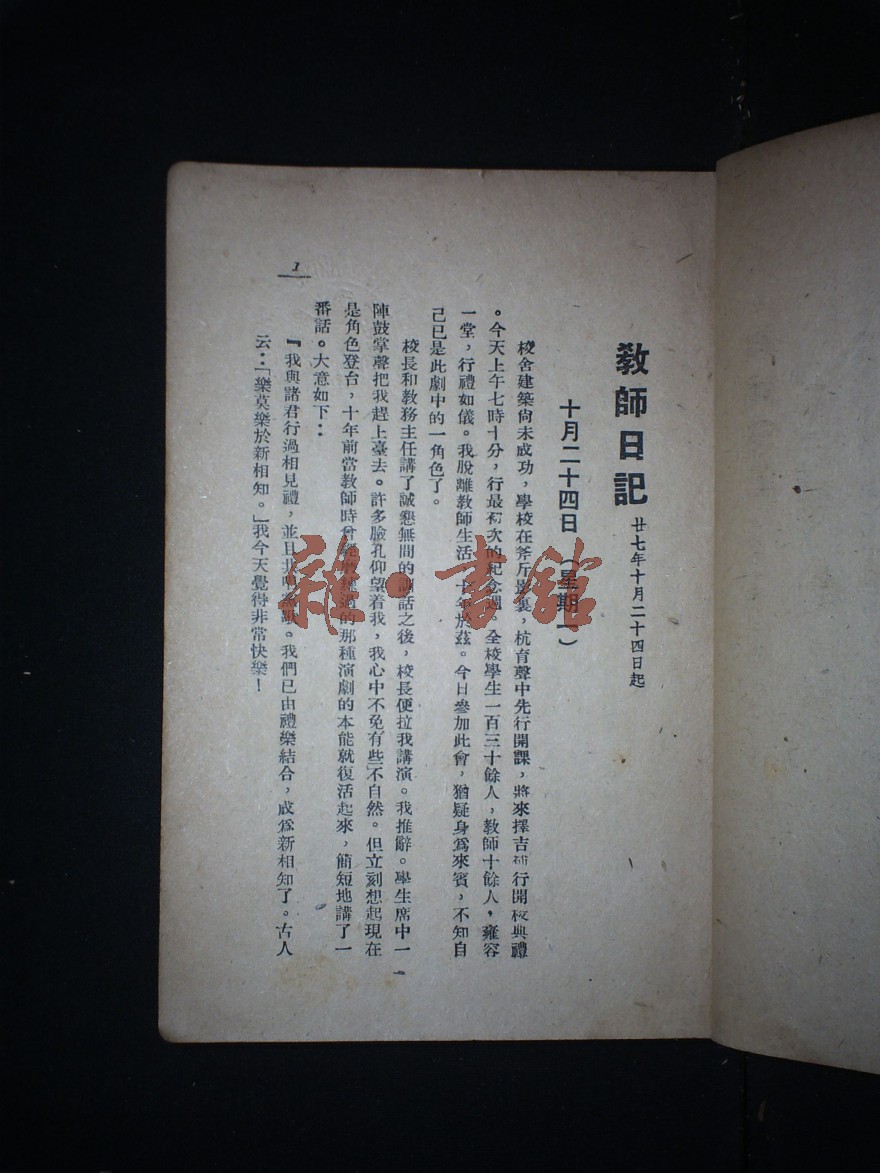 教師日記 廿七年十月二十四日起
十月二十四日（星期一）
校舍建築尙未成功，學校在斧斤影裏，杭育聲中先行開課，將來擇吉補行開校典禮
。今天上午七時十分，行最初次的紀念週。全校學生一百三十餘人，教師十餘人，雍容
一堂，行禮如儀。我脫離教師生活，十年於茲。今日參加此會，猶疑身爲來賓，不知自
己已是此劇中的一角色了。
校長和教務主任講了誠懇無間的訓話之後，校長便拉我講演。我推辭。學生席中一
陣鼓掌聲把我趕上臺去。許多臉孔仰望着我，我心中不免有些不自然。但立刻想起現在
是角色登台，十年前當教師時曾經過的那種演劇的本能就復活起來，簡短地講了一
番話。大意如下：
『我與諸君行過相見禮，並且共歌。我們已由禮樂結合，成爲新相知了。古人
云：「樂莫樂於新相知。」我今天覺得非常快樂！
1
雜·書館